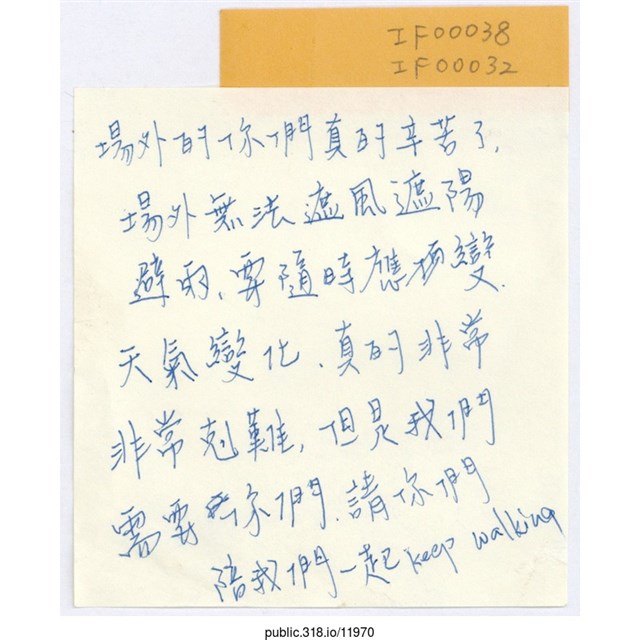 IF00038
IF00032
場外的你們真的辛苦了,
場外無法遮風遮陽
避雨、要隨時應
變.
天氣變化、真的非常
非常剋難,但是我們
需要你們.請你們
陪我們一起keep walking
public.318.io/11970